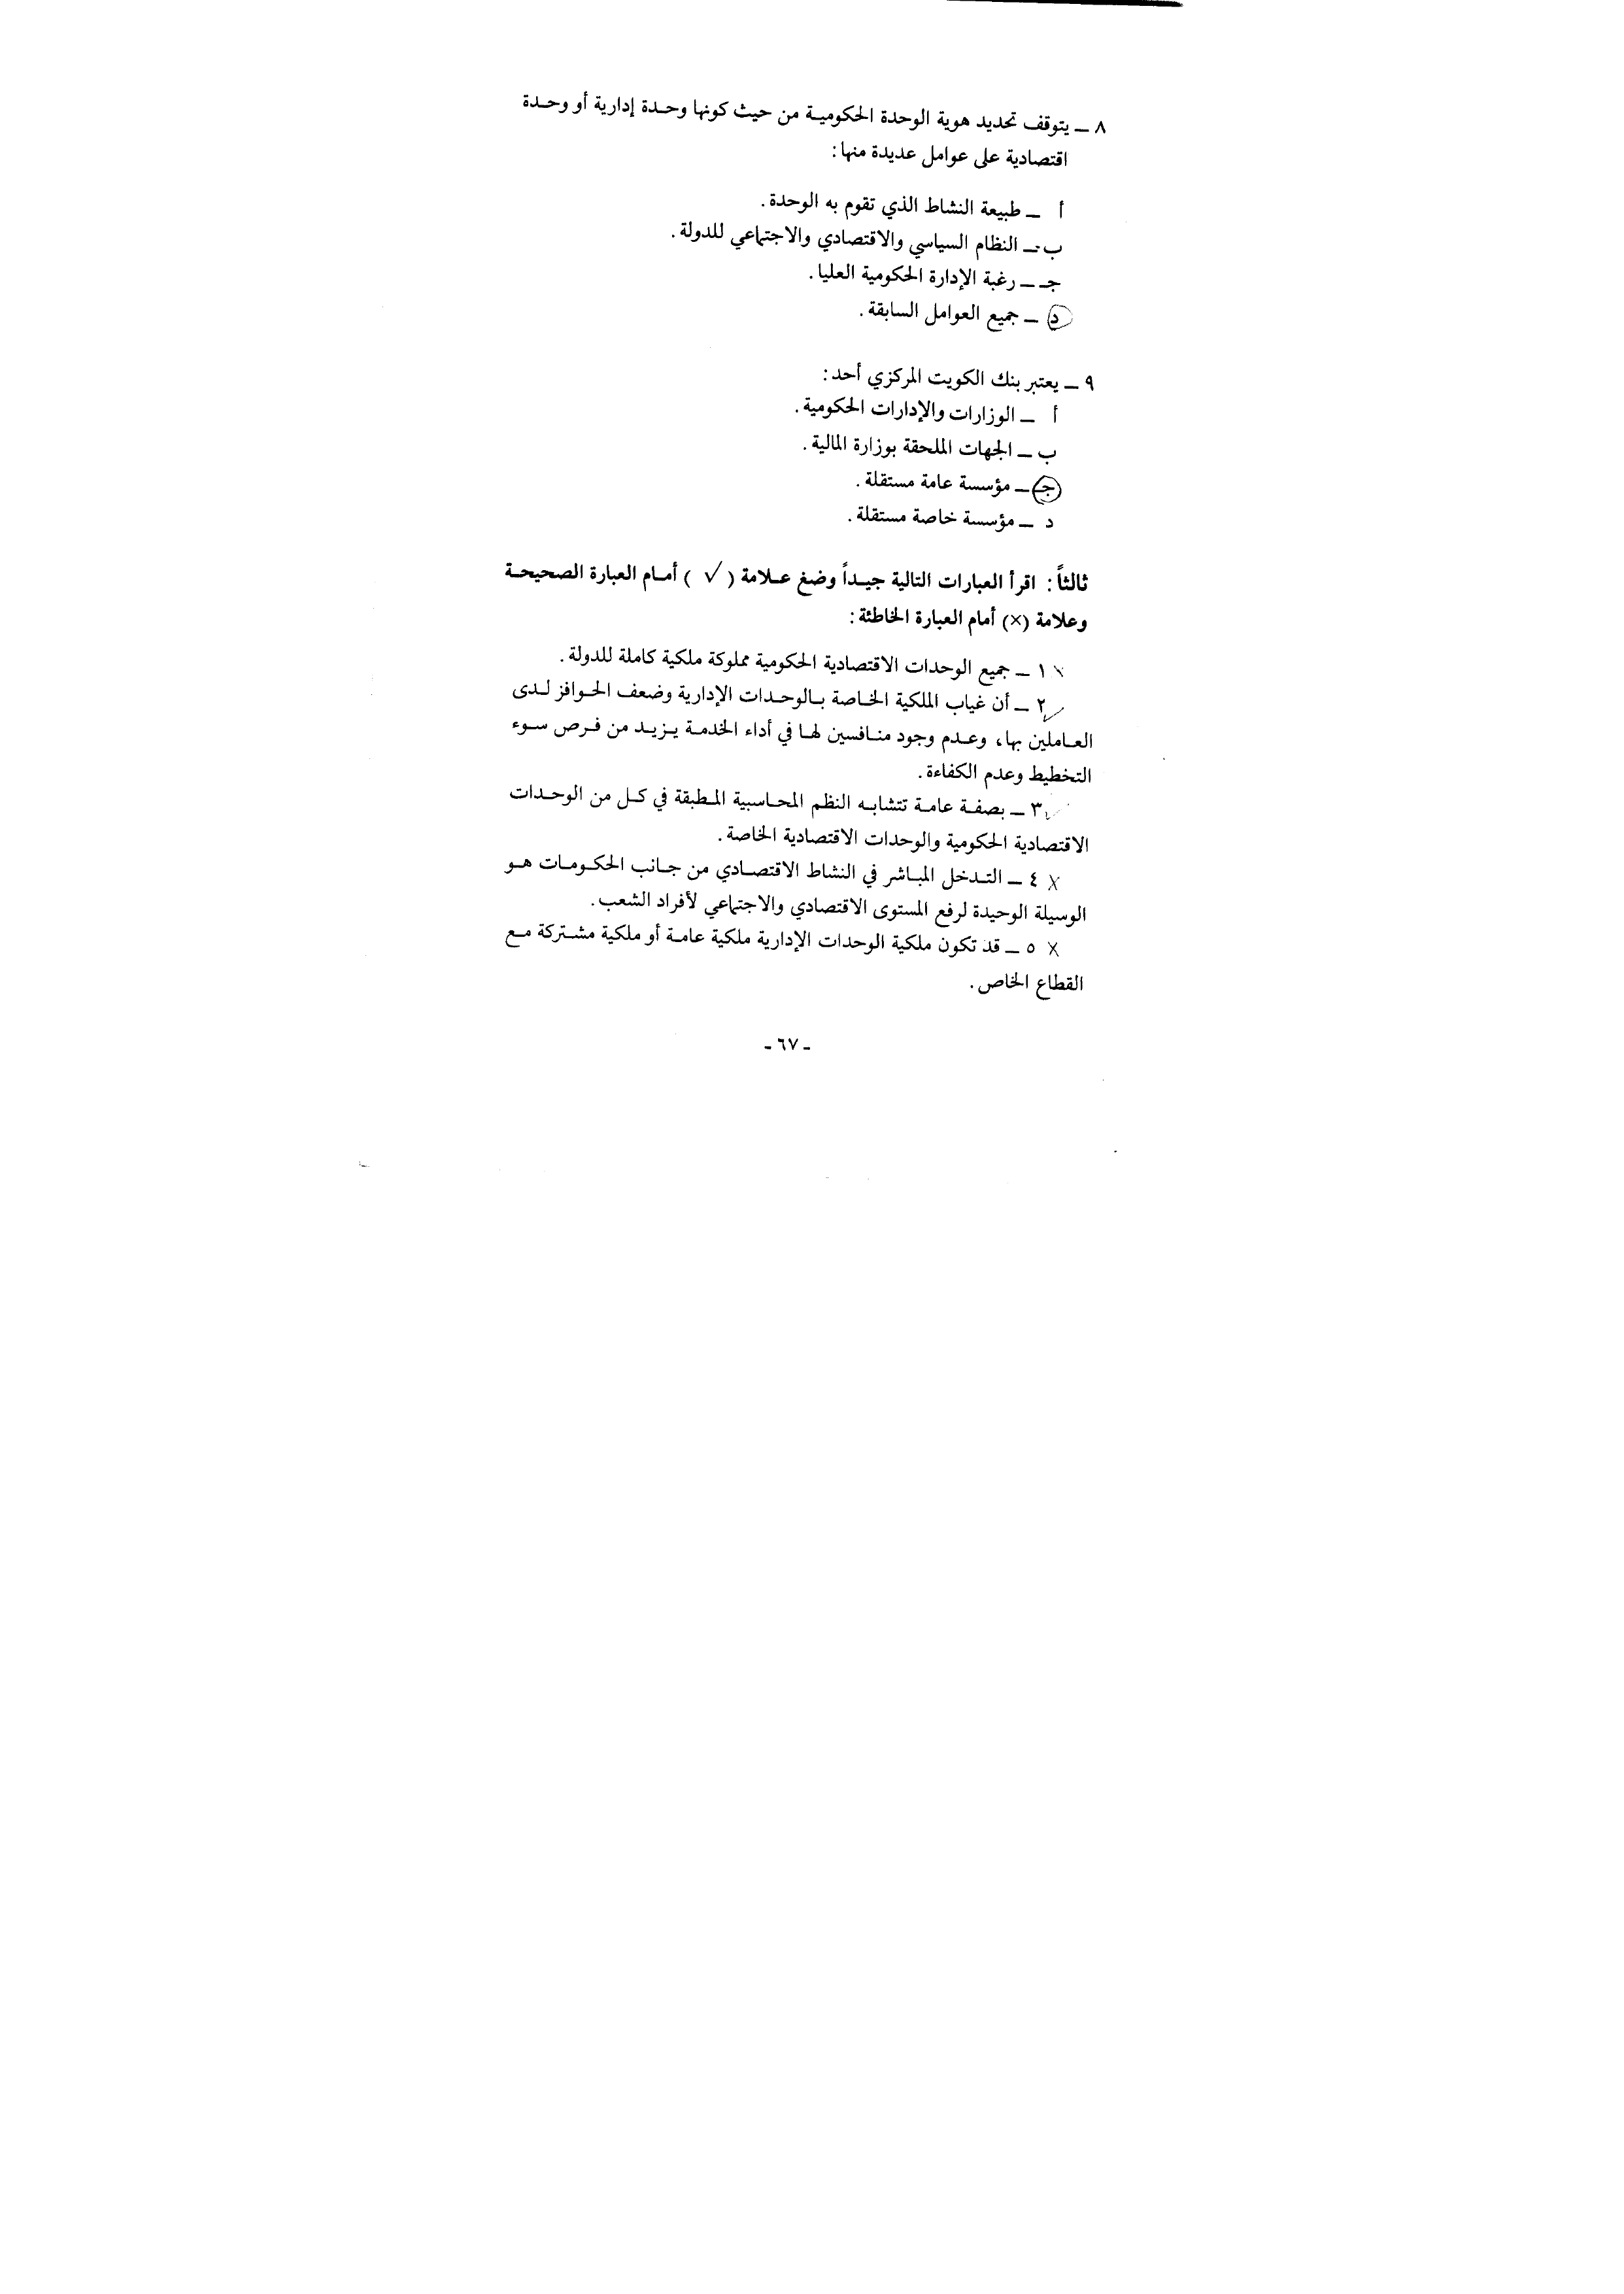 ٨ ــ يتوقف تحديد هوية الوحدة الحكومية من حيث كونها وحدة إدارية أو وحدة
اقتصادية على عوامل عديدة منها:
أ ــ طبيعة النشاط الذي تقوم به الوحدة.
ب ــ النظام السياسي والاقتصادي والاجتماعي للدولة.
جـ ــ رغبة الإدارة الحكومية العليا.
د ــ جميع العوامل السابقة.
٩ ــ يعتبر بنك الكويت المركزي أحد:
أ ــ الوزارات والإدارات الحكومية.
ب ــ الجهات الملحقة بوزارة المالية.
جـ ــ مؤسسة عامة مستقلة.
د ــ مؤسسة خاصة مستقلة.
ثالثاً: اقرأ العبارات التالية جيداً وضغ علامة ( ✓ ) أمام العبارة الصحيحة
وعلامة (×) أمام العبارة الخاطئة:
× ١ ــ جميع الوحدات الاقتصادية الحكومية مملوكة ملكية كاملة للدولة.
✓ ٢ ــ أن غياب الملكية الخاصة بالوحدات الإدارية وضعف الحوافز لدى
العاملين بها، وعدم وجود منافسين لها في أداء الخدمة يزيد من فرص سوء
التخطيط وعدم الكفاءة.
✓ ٣ ــ بصفة عامة تتشابه النظم المحاسبية المطبقة في كل من الوحدات
الاقتصادية الحكومية والوحدات الاقتصادية الخاصة.
× ٤ ــ التدخل المباشر في النشاط الاقتصادي من جانب الحكومات هو
الوسيلة الوحيدة لرفع المستوى الاقتصادي والاجتماعي لأفراد الشعب.
× ٥ ــ قد تكون ملكية الوحدات الإدارية ملكية عامة أو ملكية مشتركة مع
القطاع الخاص.
- ٦٧ -